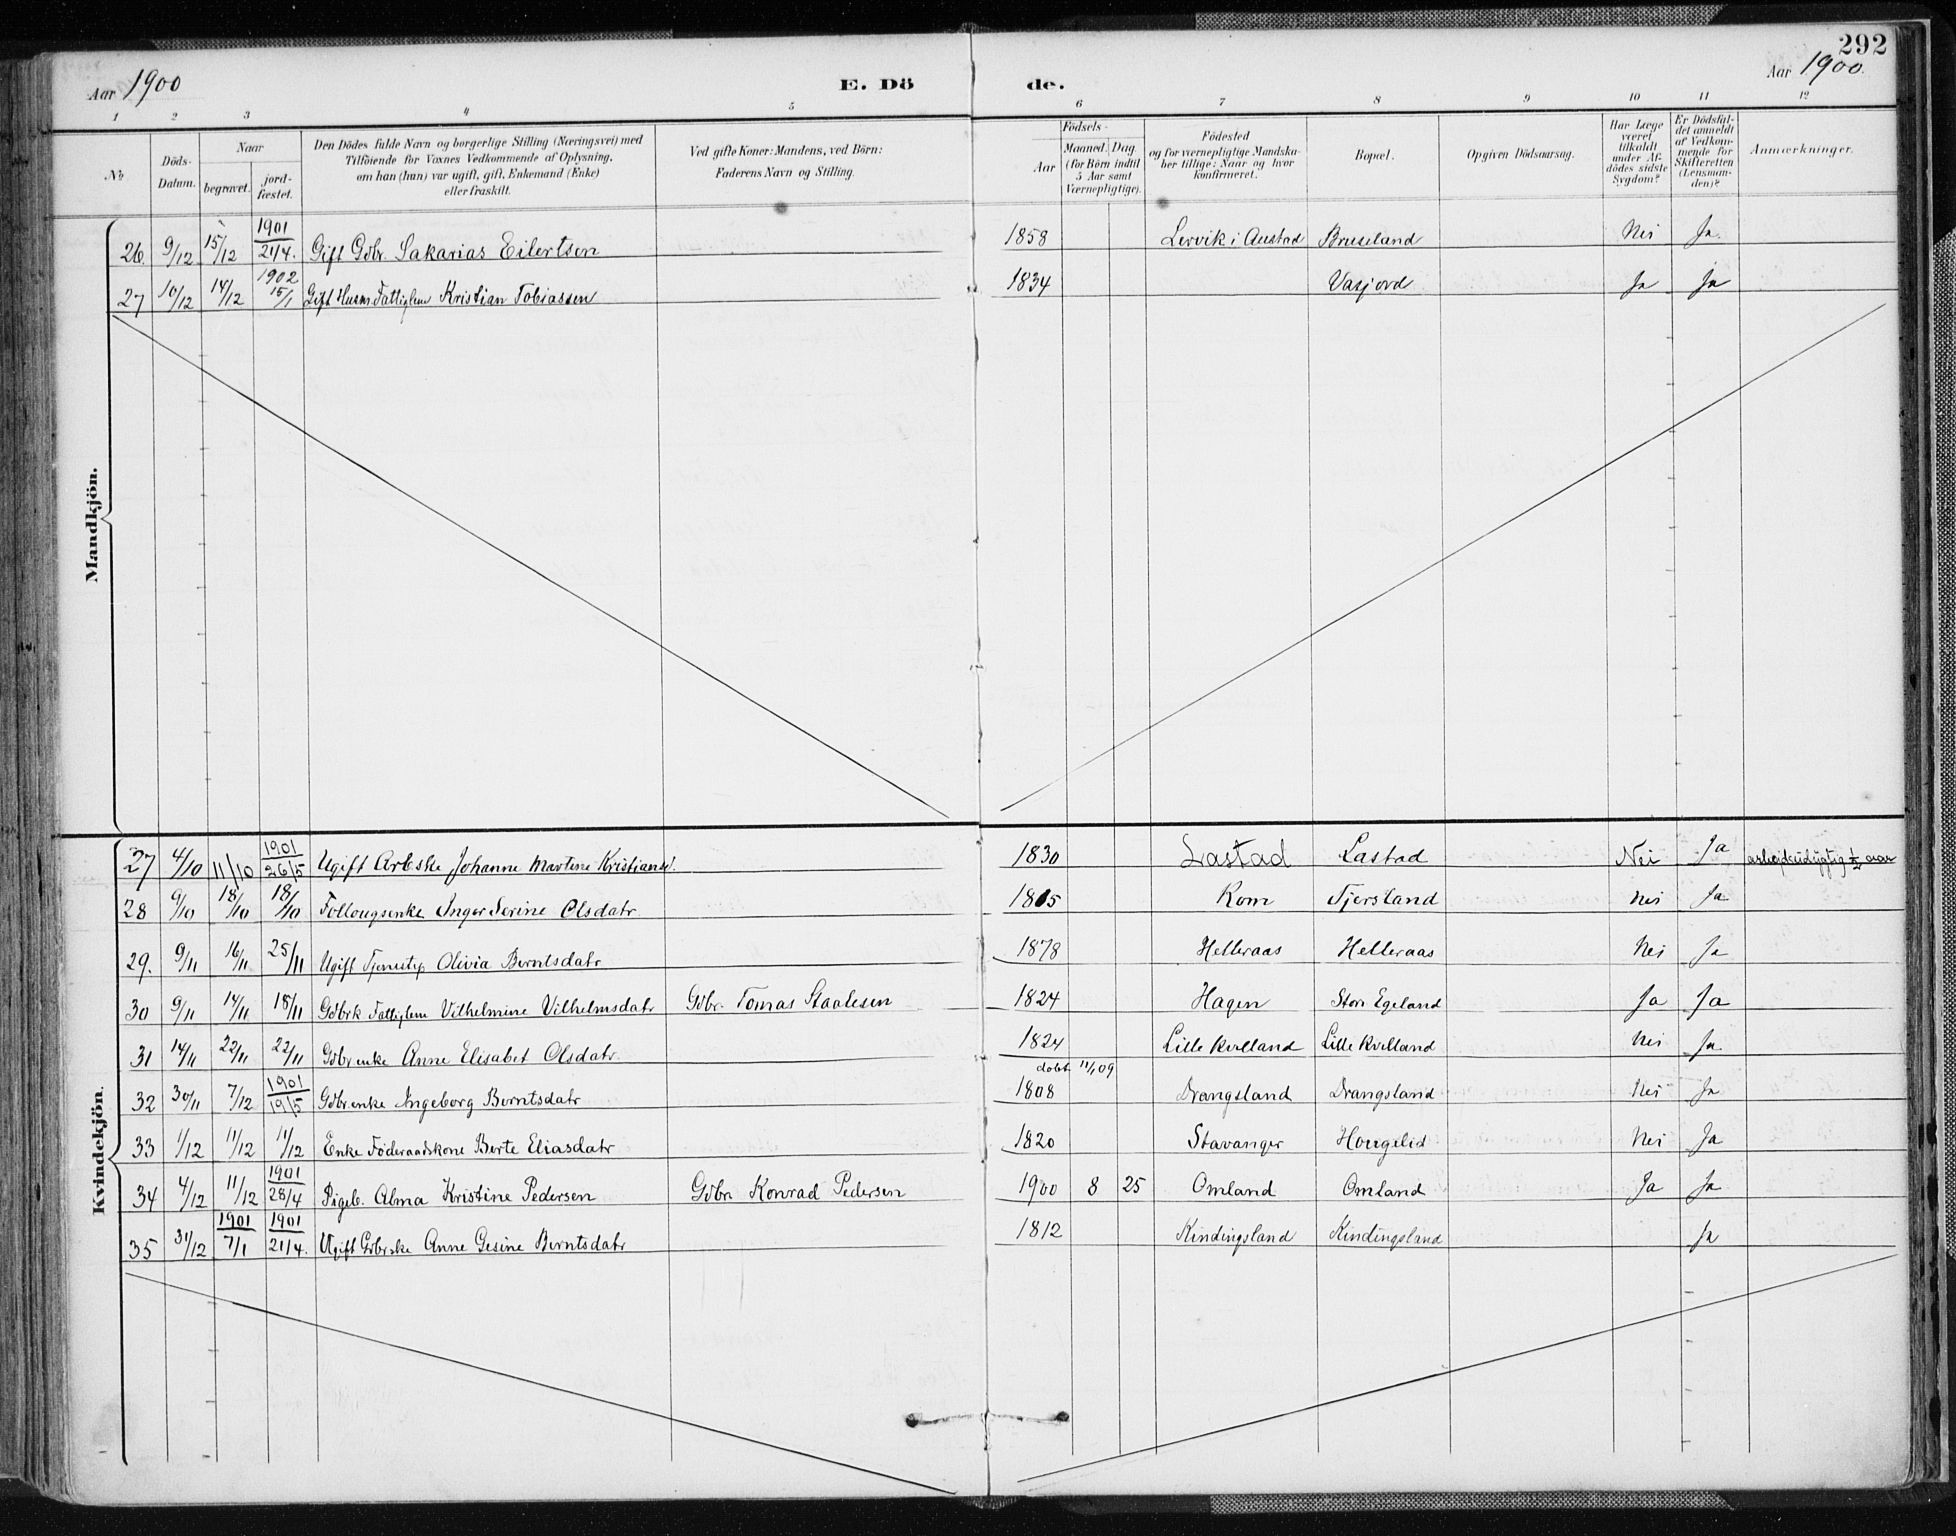 292
Aar 1900 E. Dö de. Aar 1900.
1 2 3 4 5 6 7 8 9 10 11 12
No. Döds-Datum. Naar begravet. jord-fæstet. Den Dödes fulde Navn og borgerlige Stilling (Næringsvei) med Tilföiende for Voxnes Vedkommende af Oplysning, om han (hun) var ugift, gift, Enkemand (Enke) eller fraskilt. Ved gifte Koner: Mandens, ved Börn: Faderens Navn og Stilling. Födsels- Aar Maaned. Dag. (for Börn indtil 5 Aar samt Værnepligtige). Födested og for værnepligtige Mandskaber tillige: Naar og hvor konfirmeret. Bopæl. Opgiven Dödsaarsag. Har Læge været tilkaldt under Afdödes sidste Sygdom? Er Dödsfaldet anmeldt af Vedkommende for Skifteretten (Lensmanden)? Anmærkninger.
Mandkjön.
26. 9/12 15/12 1901 21/4. Gift Gdbr. Sakarias Eilertsen 1858 Lervik i Austad Bruseland Nei Ja.
27 10/12 14/12 1902 15/1 Gift Husm. Fattiglem Kristian Tobiassen 1834 Vasjord Ja Ja
Kvindekjön.
27 4/10 11/10 1901 26/5 Ugift Arbske Johanne Martine Kristiansd. 1830 Lastad Lastad Nei Ja arbejdsudygtig 1/2 aar
28 9/10 18/10 18/10 Follougsenke Inger Serine Olsdatr 1815 Rom Tjersland Nei Ja
29. 9/11 16/11 25/11 Ugift Tjenestep Olivia Berntsdatr 1878 Helleraas Helleraas Nei Ja
30 9/11 14/11 18/11 Gdbrk Fattiglem Vilhelmine Vilhelmsdatr Gdbr. Tomas Staalesen 1824 Hagen Stor Egeland Ja Ja
31 14/11 22/11 22/11 Gdbrenke Anne Elisabet Olsdatr. 1824 Lille Kvelland Lille Kvelland Nei Ja
32 30/11 7/12 1901 19/5 Gdbrenke Ingeborg Berntsdatr døbt 11/1 09 1808 Drangsland Drangsland Nei Ja
33 1/12 11/12 11/12 Enke Föderaadskone Berte Eliasdatr 1820 Stavanger Hougelid Nei Ja
34 4/12 11/12 1901 28/4 Pigeb. Alma Kristine Pedersen Gdbr Konrad Pedersen 1900 8 25 Omland Omland Ja Ja
35 31/12 1901 7/1 1901 21/4. Ugift Gdbrske Anne Gesine Berntsdatr 1812 Kindingsland Kindingsland Ja